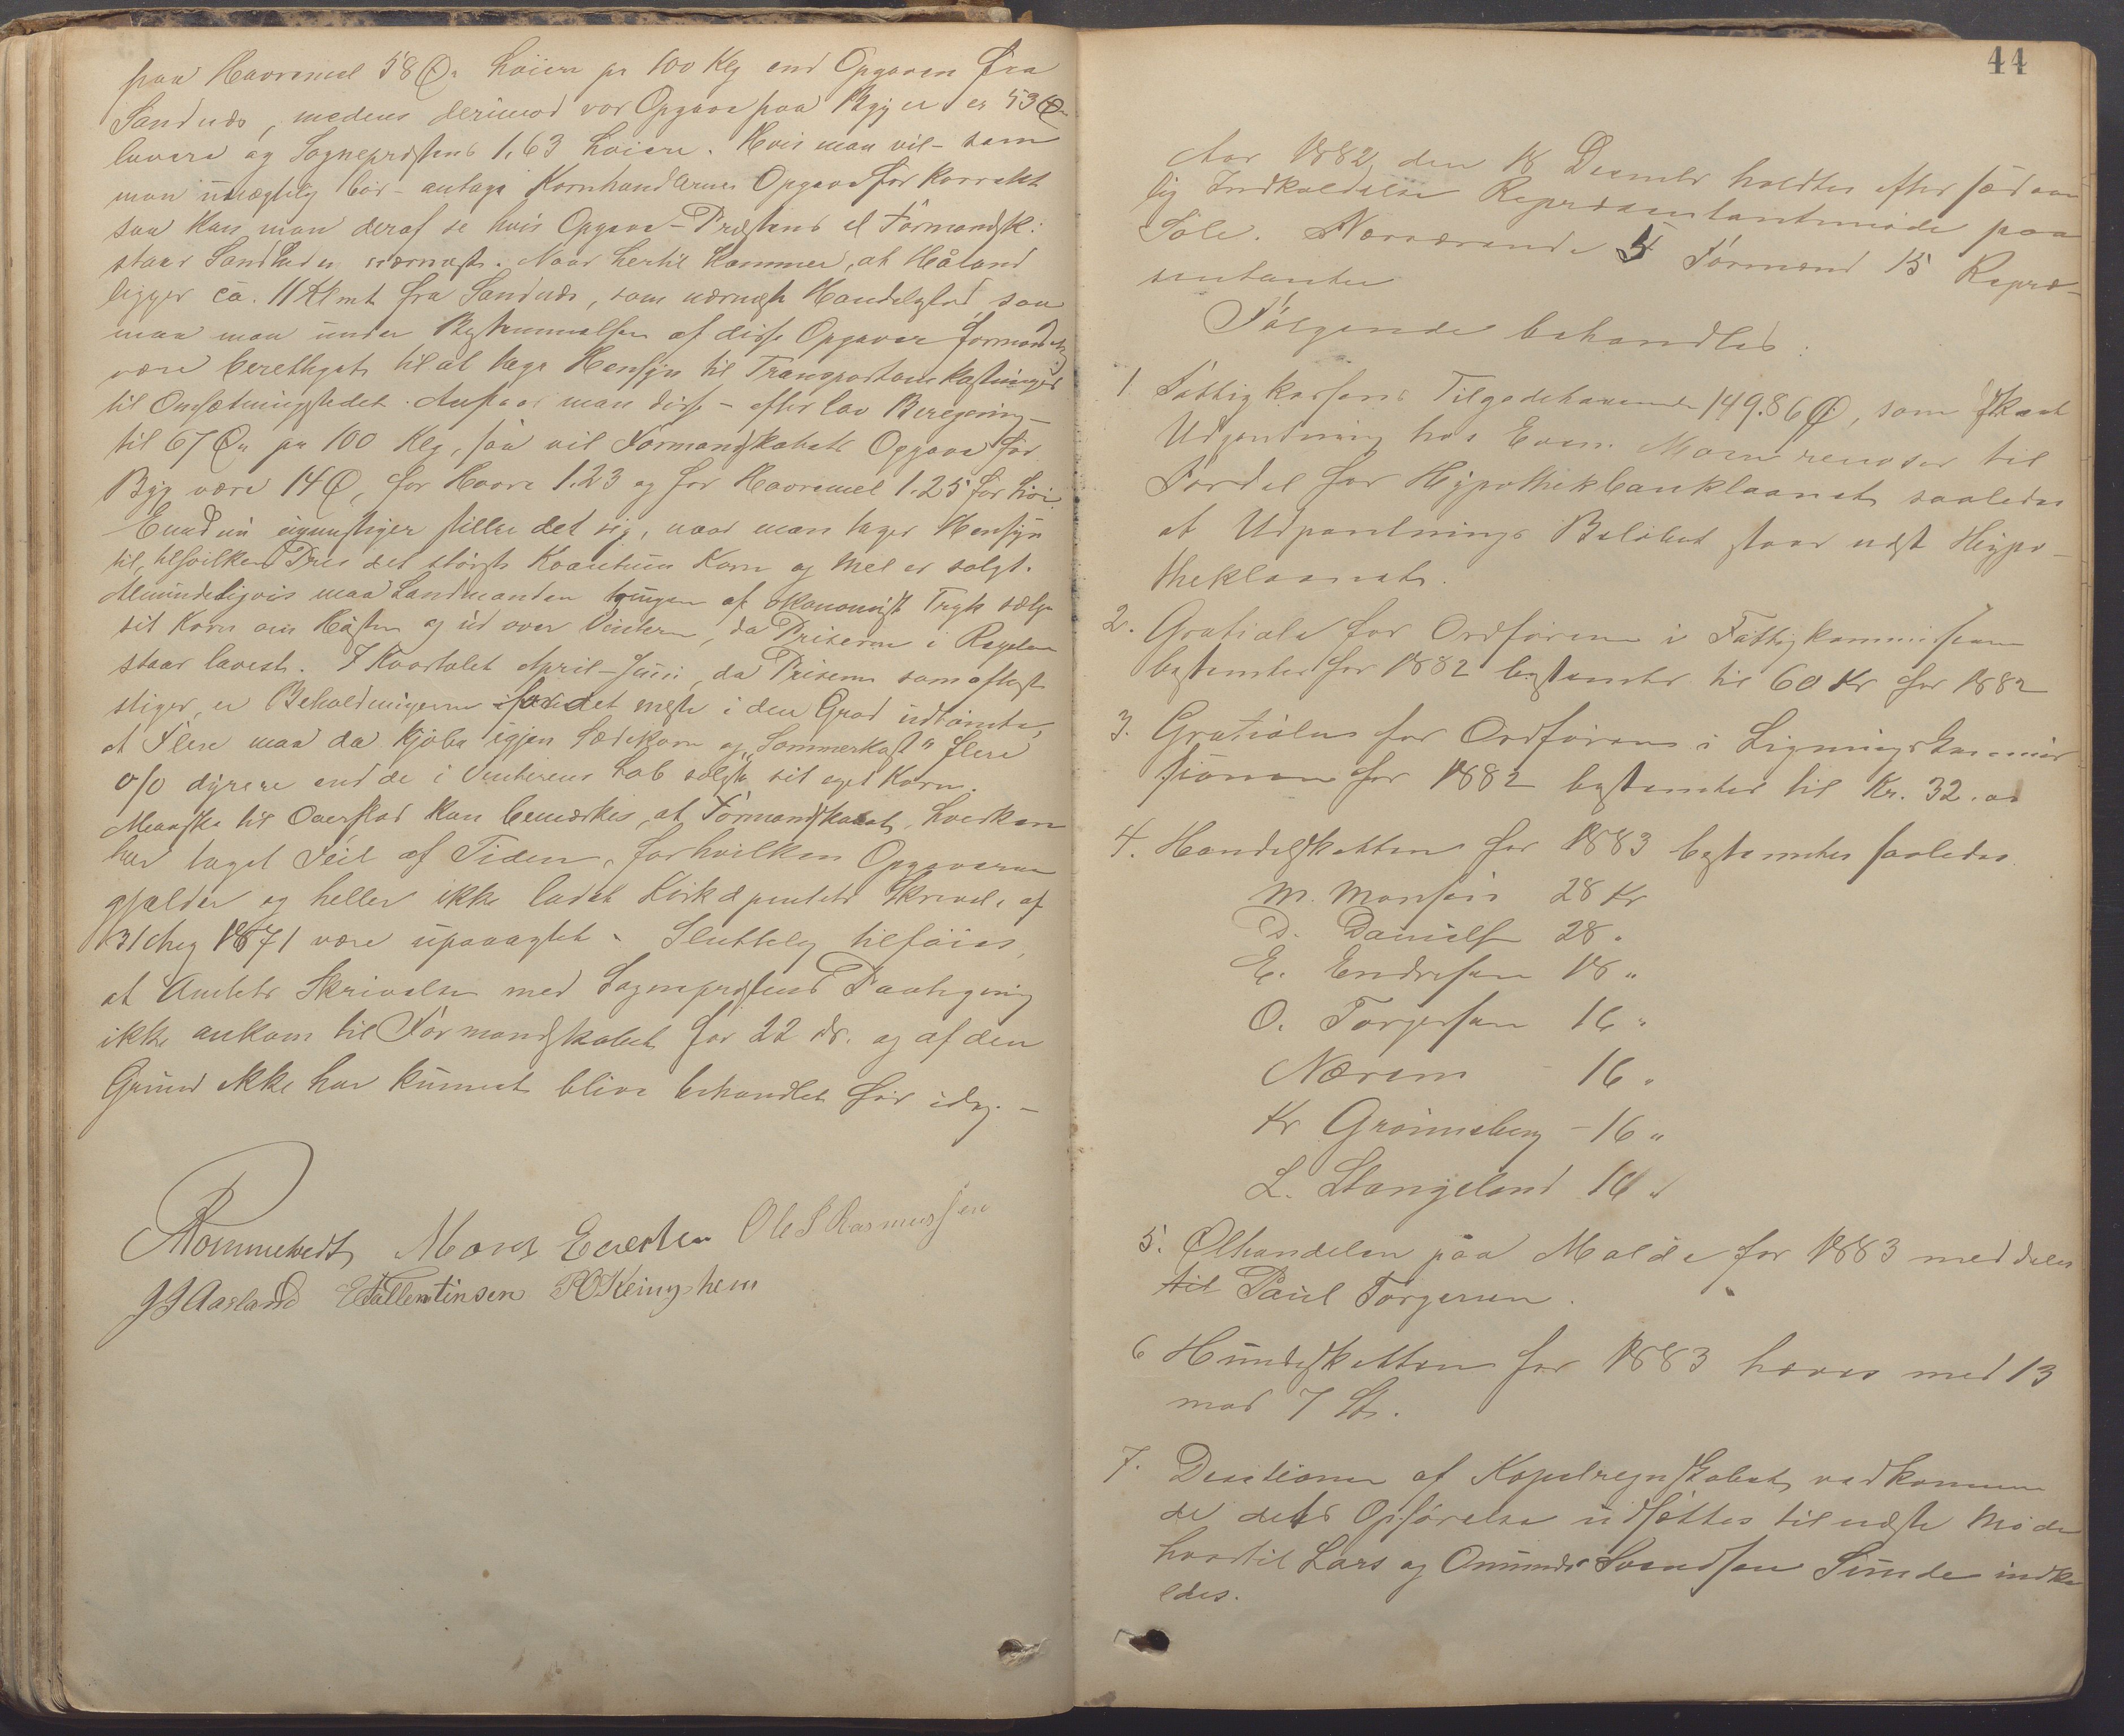 paa Havremel 58 Ø. höiere pr 100 Klg end Opgaven fra
Sandnæs, medens derimod vor Opgave paa Byg er 53 Ø
lavere og Sognepræstens 1,63 höiere. Hvis man vil - som
man umægtelig bör - antage Kornhandlernes Opgave for korrekt
saa kan man deraf se hvis Opgave - Præstens el Formandsk:
staar Sandheden nærmest. Naar hertil kommer, at Håland
ligger ca. 11 Klmt fra Sandnæs, som nærmeste Handelsted, saa
maa man under Bestemmelsen af disse Opgaver formentl
være berettiget til at tage Hensyn til Transportomkostninger
til Omsætningstedet. Anslaar man disse - efter lav Beregning -
til 67 Øre pr 100 Klg, saa vil Formandskabets Opgave for
Byg være 14 Ø, for Havre 1.23 og for Havremel 1.25 for höi.
Endnu ugunstigere stiller det sig, naar man tager Hensyn
til, til hvilken Pris det störste Kvantum Korn og Mel er solgt.
Almindeligvis maa Landmanden tvungen af økonomisk Tryk sælge
sit Korn om Hösten og ud over Vinteren, da Priserne i Regelen
staar lavest. I Kvartalet April-Juni, da Priserne som oftest
stiger, er Beholdningerne for det meste i den Grad udtömte,
at Flere maa da kjöbe igjen Sædekorn og "Sommerkost" flere
o/o dyrere end de i Vinterens Löb solgte sit eget Korn.
Maaske til Overflod kan bemærkes, at Formandskabet hverken
har taget Feil af Tiden, for hvilken Opgaverne
gjælder og heller ikke ladet Kirkedpmtets Skrivelse af
31 Aug 1871 være upaaagtet. Sluttelig tilföies,
at Amtets Skrivelse med Sognepræstens Paategning
ikke ankom til Formandskabet för 22 ds. og af den
Grund ikke har kunnet blive behandlet för idag. -
Rommetvedt Maves Eversten Ole S Rasmussen
J J Aasland E Tallentinsen
44
Aar 1882 den 18 Decembr holdtes efter sædvan
lig Indkaldelse Repræsentantmöde paa
Sole. Nærværende 5 Formænd 15 Repræ-
sentanter
Fölgende behandled:
1. Fattigkassens Tilgodehavende 149.86 Ø, som
Udpantning hos Even til
Fordel for Hypothekbanklaanet saaledes
at Udpantnings Belöbet staar næst Hypo-
theklaanet.
2. Gratiale for Ordföreren i Fattigkommissionen
bestemtes for 1882 bestemtes til 60 Kr for 1882
3. Gratialet for Ordföreren i Ligningskommis
sionen for 1882 bestemtes til Kr. 32.00
4. Handelskatten for 1883 bestemtes saaledes
M. Monsen 28 Kr
D. Danielsen 28 "
E. Endresen 18 "
O. Torgersen 16 "
Nærem - 16 "
Kr Grönnsberg - 16 "
L. Stangeland 16 "
5. Ølhandelen paa Malde for 1883 meddeles
til Paul Torgersen.
6 Hundeskatten for 1883 hæves med 13
mod 7 St.
7. Desitioner af Kapelregnskabet vedkommen
de dets Opförelse udsættes til næste Möde
hvortil Lars og Omund Svendsen Sunde indka
ldes.